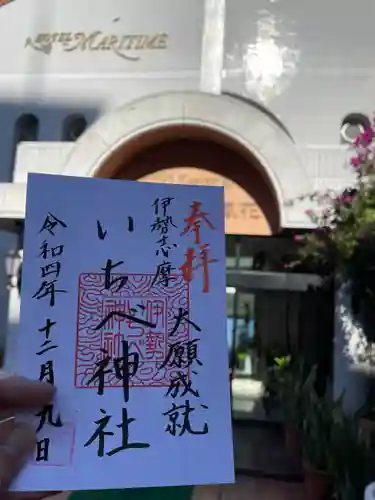 HOTEL
MARITIME
奉拝
伊勢志摩
大願成就
いちべ神社
令和四年十二月九日